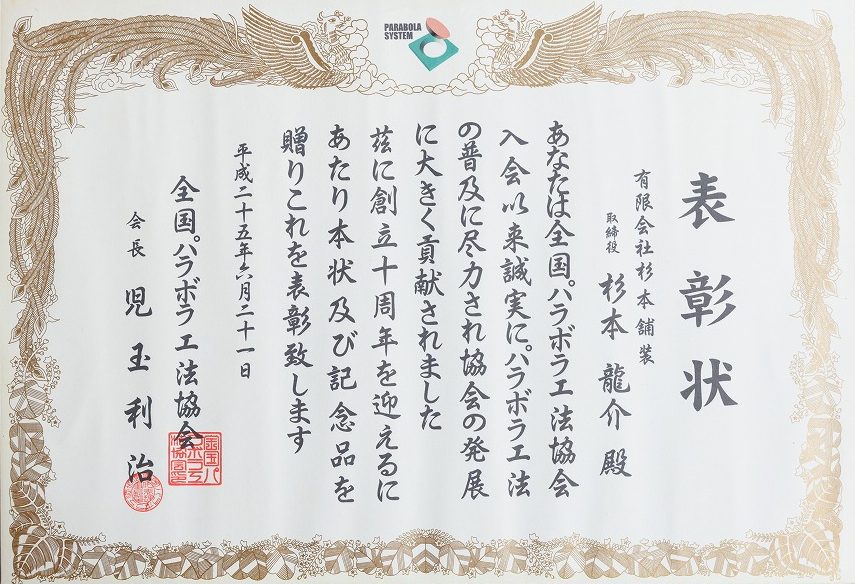 PARABOLA
SYSTEM
表彰状
有限会社杉本舗装
取締役 杉本 龍介 殿
あなたは全国パラボラ工法協会
入会以来誠実にパラボラ工法
の普及に尽力され協会の発展
に大きく貢献されました
茲に創立十周年を迎えるに
あたり本状及び記念品を
贈りこれを表彰致します
平成二十五年六月二十一日
全国パラボラ工法協会
会長 児玉利治